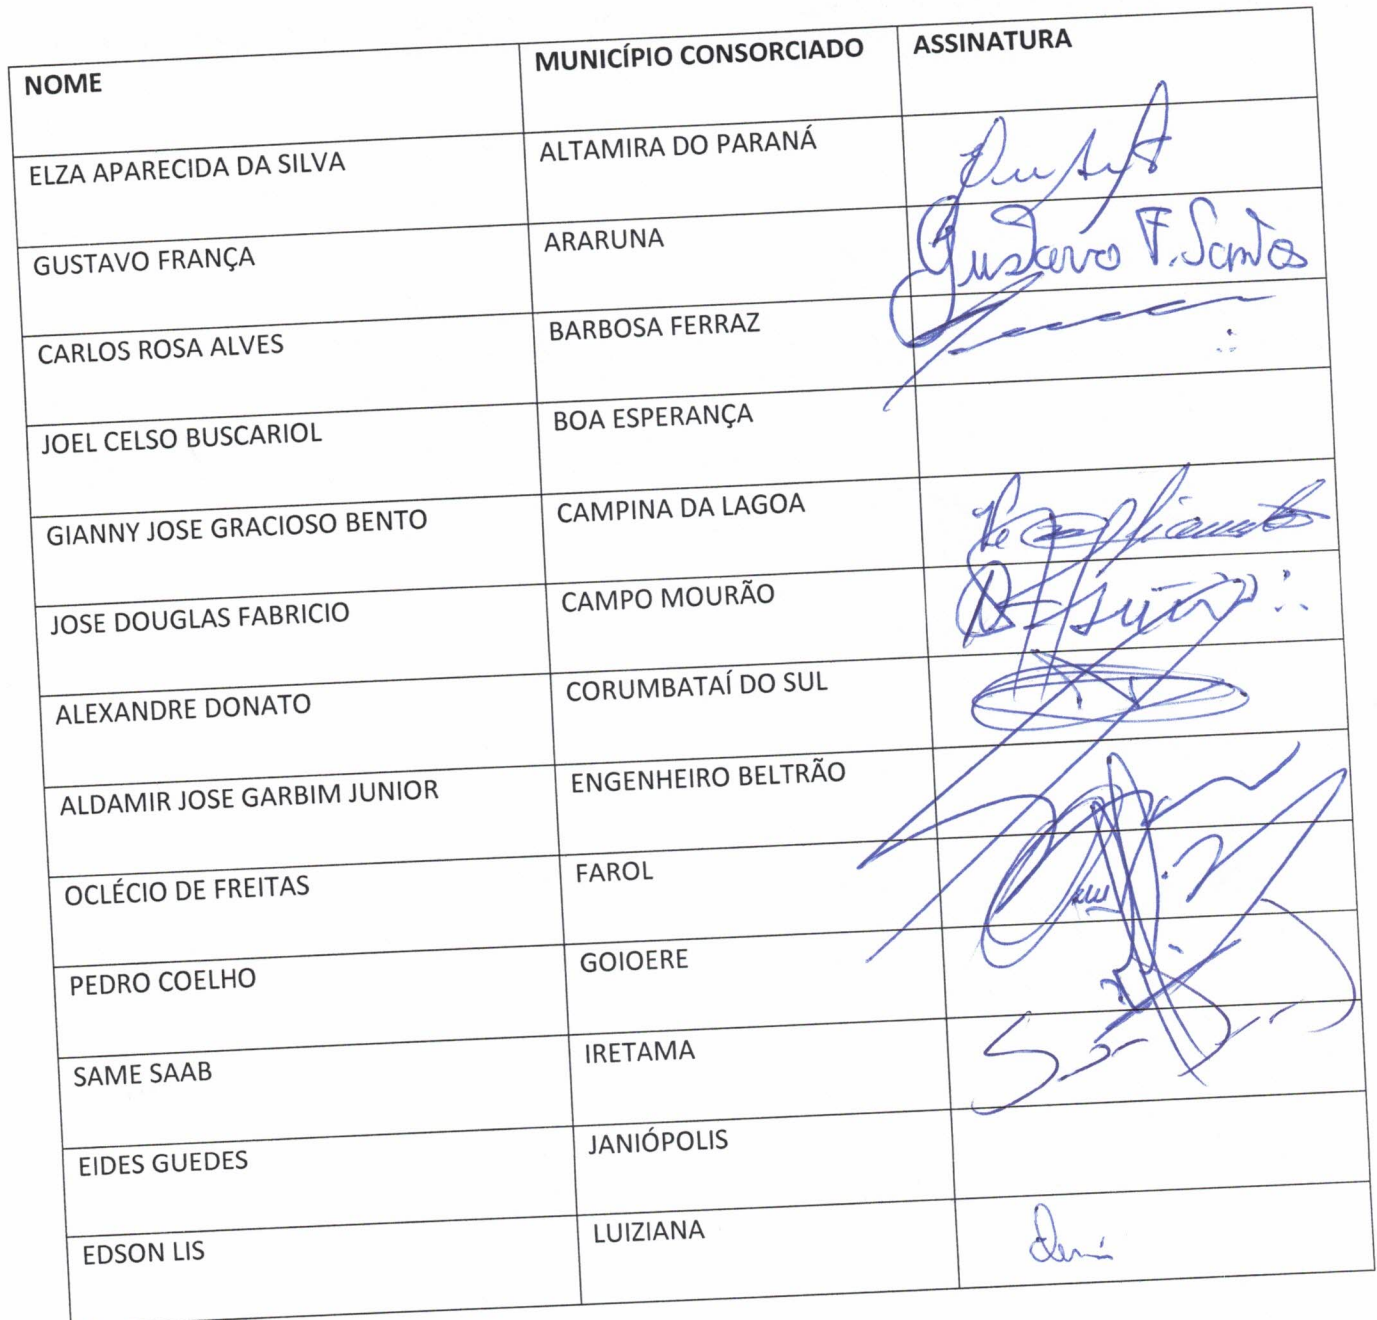 NOME MUNICÍPIO CONSORCIADO ASSINATURA
ELZA APARECIDA DA SILVA ALTAMIRA DO PARANÁ
GUSTAVO FRANÇA ARARUNA Gustavo F. Santos
CARLOS ROSA ALVES BARBOSA FERRAZ
JOEL CELSO BUSCARIOL BOA ESPERANÇA
GIANNY JOSE GRACIOSO BENTO CAMPINA DA LAGOA
JOSE DOUGLAS FABRICIO CAMPO MOURÃO
ALEXANDRE DONATO CORUMBATAÍ DO SUL
ALDAMIR JOSE GARBIM JUNIOR ENGENHEIRO BELTRÃO
OCLÉCIO DE FREITAS FAROL
PEDRO COELHO GOIOERE
SAME SAAB IRETAMA
EIDES GUEDES JANIÓPOLIS
EDSON LIS LUIZIANA